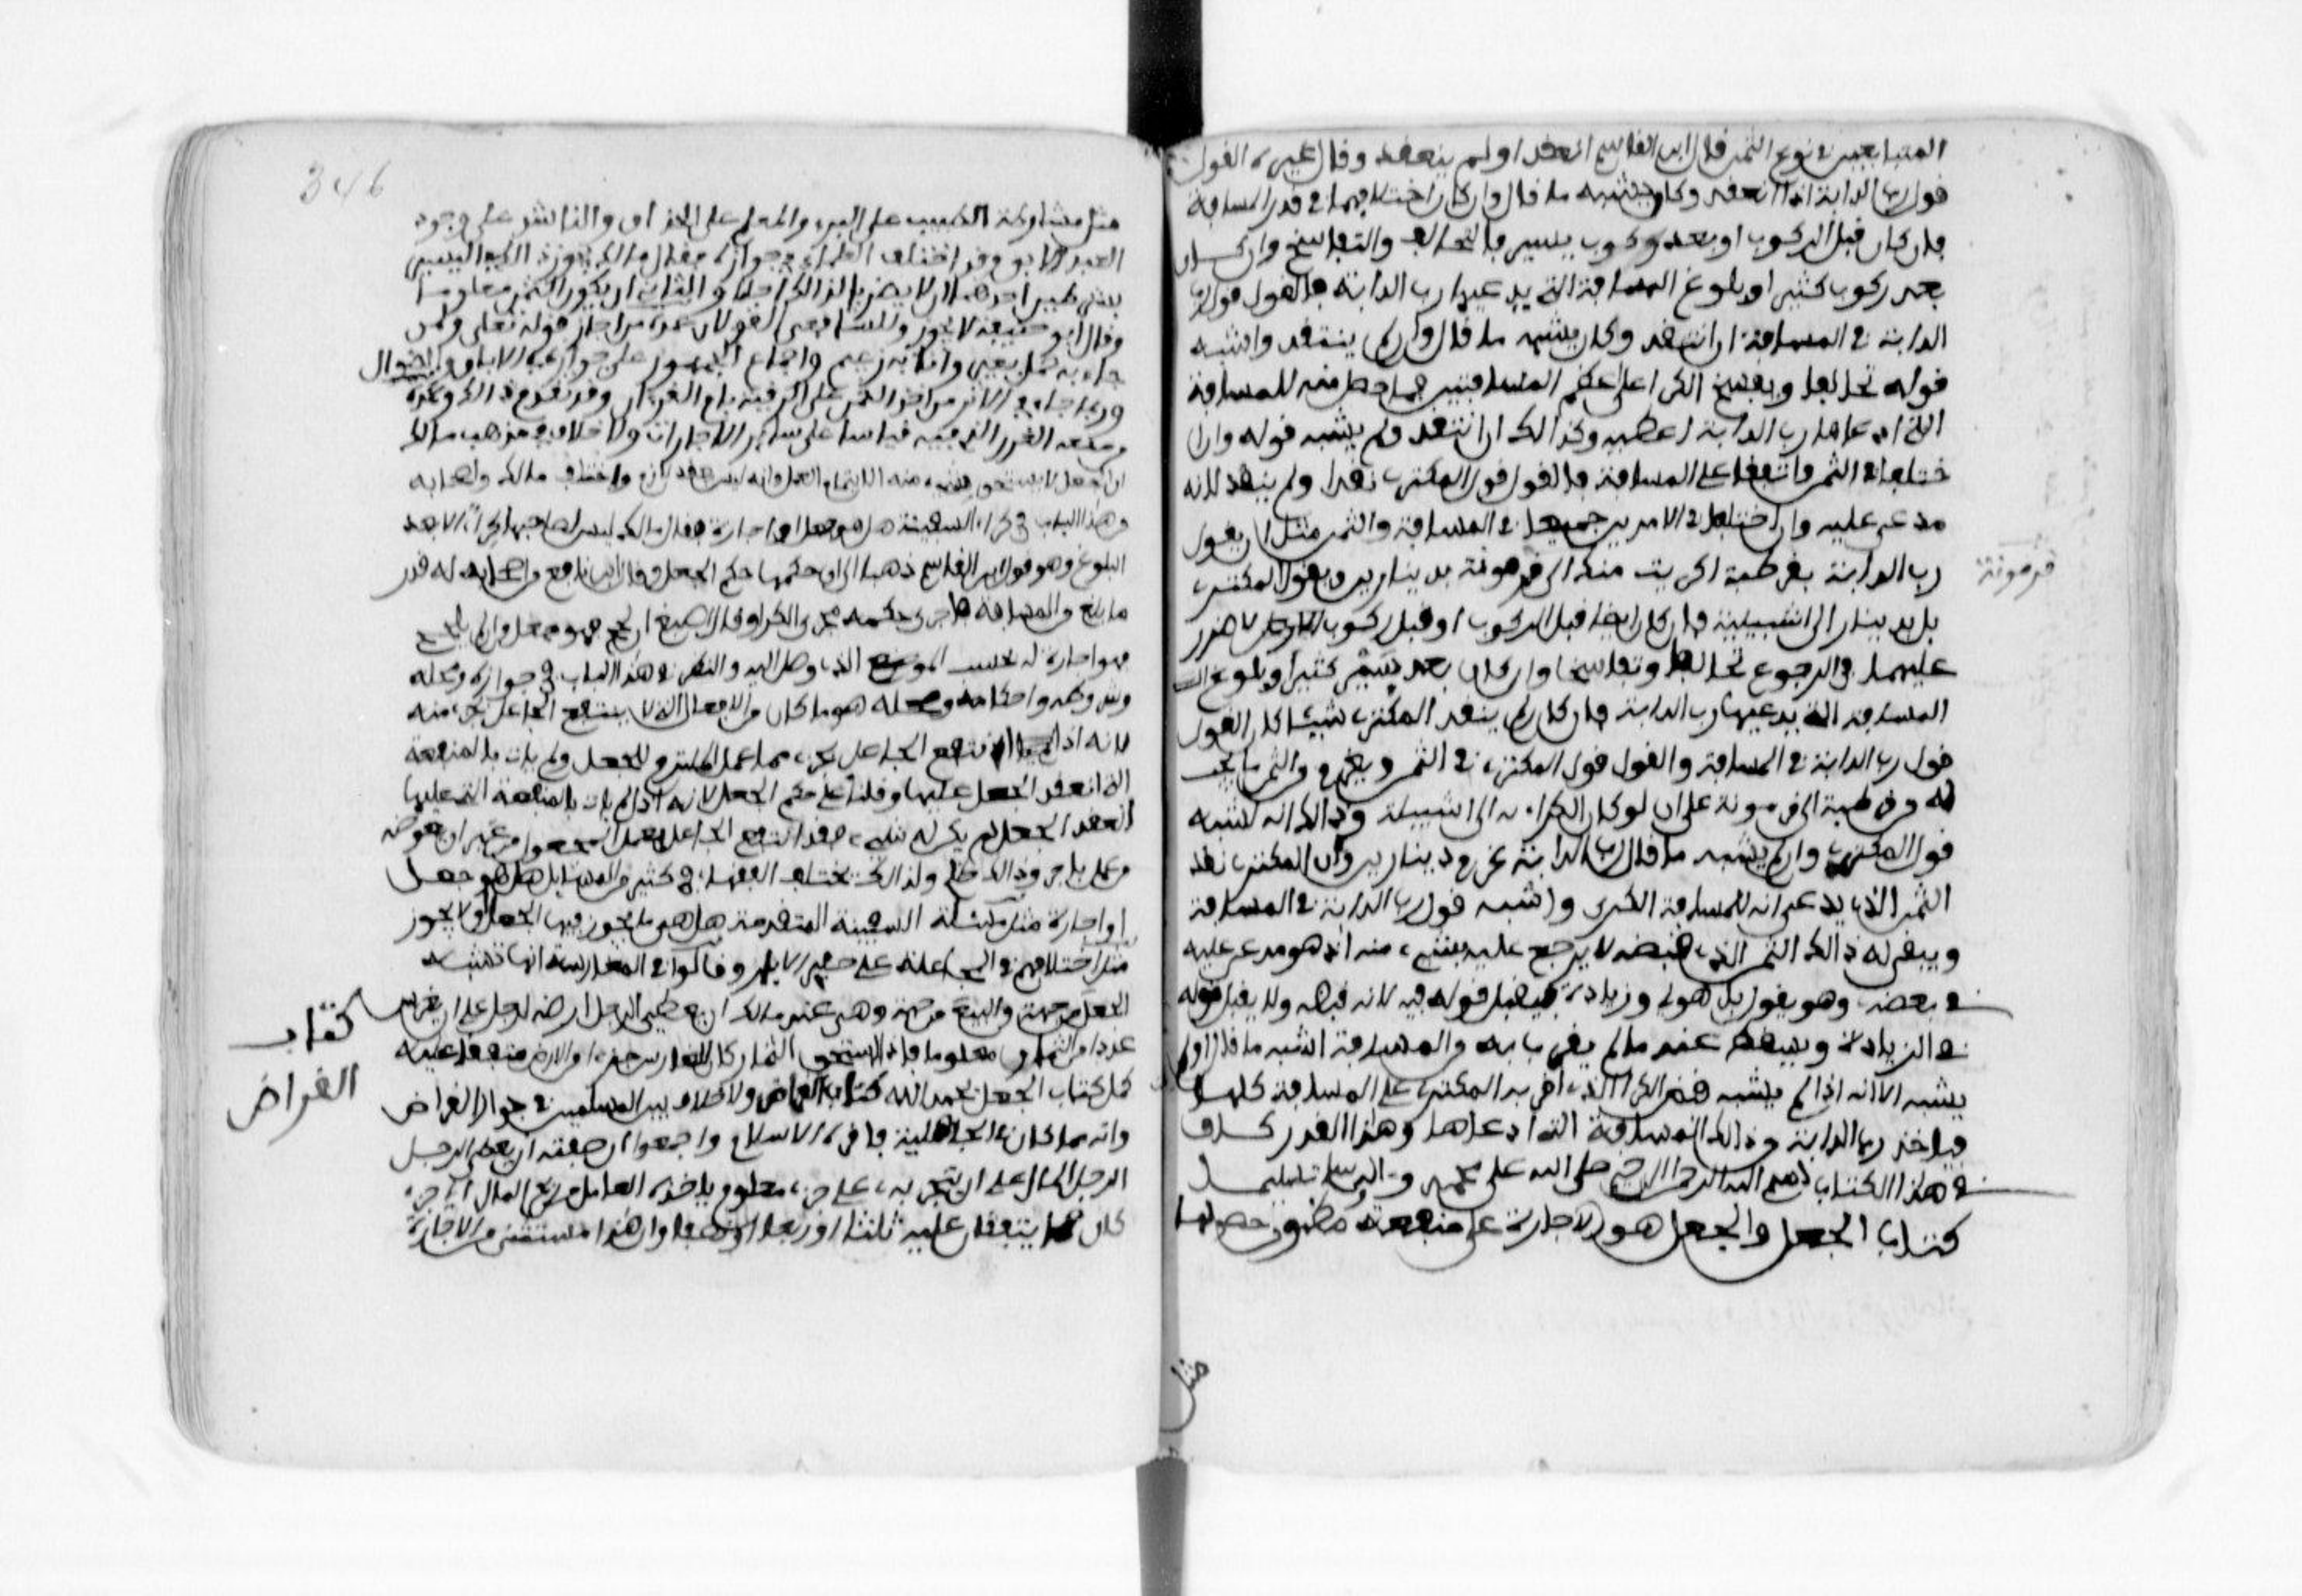 المتبايعين في نوع الثمن قال ابن القاسم انعقد او لم ينعقد وقال غيره القول
قول رب الدابة اذا انعقد وكان يشبه ما قال وان كان اختلافهما في قدر المسافة
فان كان قبل الركوب او بعد ركوب يسير فالتحالف والتفاسخ وان كان
بعد ركوب كثير او بلوغ المسافة التي يدعيها رب الدابة فالقول قول رب
الدابة في المسافة ان انتقد وكان يشبه ما قال وان لم ينتقد واشبه
قوله تحالفا ويفسخ الكرا على اعظم المسافتين فما حط منه للمسافة
التي ادعاها رب الدابة اعطيه وكذالك ان انتقد ولم يشبه قوله وان ا
ختلفا في الثمن واتفقا على المسافة فالقول قول المكتري نقدا ولم ينقد لانه
مدعى عليه وان اختلفا في الامرين جميعا في المسافة والثمن مثل ان يقول
رب الدابة بقرطبة اكريت منك الى قرمونة بدينارين ويقول المكتري
بل بدينار الى اشبيلية فان كان ايضا قبل الركوب او قبل ركوب لا ضرر
عليهما في الرجوع تحالفا وتفاسخا وان كان بعد سير كثير او بلوغ
المسافة التي يدعيها رب الدابة فان كان لم ينقد المكتري شيئا كان القول
قول رب الدابة في المسافة والقول قول المكتري في الثمن ويغرم من الثمن ما يجب
له من قرطبة الى قرمونة على ان لو كان الكراء به الى اشبيلية وذالك انه اشبه
قول المكتري وان لم يشبه ما قال رب الدابة غرم دينارين وان المكتري نقد
الثمن الذي يدعى انه للمسافة الكبرى واشبه قول رب الدابة في المسافة
ويبقى له ذالك الثمن الذي قبضه لا يرجع عليه بشيء منه اذ هو مدعى عليه
في بعضه وهو يقول بل هو لي وزيادة فيقبل قوله فيه لانه قبضه ولا يقبل قوله
في الزيادة ويسقط عنه ما لم يقر به من المسافة اشبه ما قال او لم
يشبه الا انه اذا لم يشبه قسم الكرا الذي اقر به المكتري على المسافة كلها
فياخذ رب الدابة من ذالك المسافة التي ادعاها وهذا القدر كاف
في هذا الكتاب بسم الله الرحمن الرحيم صلى الله على محمد و اله وسلم تسليما
كتاب الجعل والجعل هو الاجارة على منفعة مظنون حصولها
قرمونة
مثل
346
مثل مشارطة الطبيب على البرء والمعلم على الحذاق والناشد على وجود
العبد الابق وقد اختلف العلماء في جوازه فقال مالك يجوز ذالك في اليسير
بشرطين احدهما ان لا يضرب لذالك اجلا والثاني ان يكون الثمن معلوما
وقال ابو حنيفة لا يجوز وللشافعي القولان عمدة من اجاز قوله تعلى ولمن
جاء به حمل بعير وانا به زعيم واجماع الجمهور على جوازه في الاباق والسؤال
وما جاء في الاثر من اخذ الثمن على الرقية بام القرءان وقد تقدم ذالك وعمدة
من منعه الغرر الذي فيه قياسا على سائر الاجارات ولا خلاف في مذهب مالك
ان الجعل لا يستحق شيء منه الا بتمام العمل وانه ليس بعقد لازم واختلف مالك واصحابه
من هذا الباب في كراء السفينة هل هو جعل او اجارة فقال مالك ليس لصاحبها كراء الا بعد
البلوغ وهو قول ابن القاسم ذهابا الى ان حكمها حكم الجعل وقال ابن نافع من اصحابه له قدر
ما بلغ من المسافة فاجرى حكمه مجرى الكرا وقال اصبغ ان لجج فهو جعل وان لم يلجج
فهو اجارة له بحسب الموضع الذي وصل اليه والنظر في هذا الباب في جوازه ومحله
وشروطه واحكامه ومحله هو ما كان من الافعال التي لا ينتفع الجاعل بجزء منه
لانه اذا انتفع الجاعل بجزء مما عمل الملتزم للجعل ولم يات بالمنفعة
التي انعقد الجعل عليها وقلنا على حكم الجعل لانه اذا لم يات بالمنفعة التي عليها
انعقد الجعل لم يكن له شيء فقد انتفع الجاعل بعمل المجعول من غير ان يعوضه
من عمله باجر وذالك ظلم ولذالك يختلف الفقهاء في كثير من المسائل هل هو جعل
او اجارة مثل مسئلة السفينة المتقدمة هل هي مما يجوز فيها الجعل او لا يجوز
مثل اختلافهم في المجاعلة على حفر الابار وقالوا في المغارسة انها تشبه
الجعل من جهة والبيع من جهة وهي عند مالك ان يعطي الرجل ارضه لرجل على ان يغرس
عددا من الثمار معلوما فاذا استحق الثمار كان للغارس جزء من الارض متفقا عليه
كمل كتاب الجعل بحمد الله كتاب القراض ولا خلاف بين المسلمين في جواز القراض
وانه مما كان في الجاهلية فاقره الاسلام واجمعوا ان صفته ان يعطي الرجل
الرجل المال على ان يتجر به على جزء معلوم ياخذه العامل من ربح المال اي جزء
كان مما يتفقان عليه ثلثا او ربعا او نصفا وان هذا مستثنى من الاجارة
كتاب
القراض